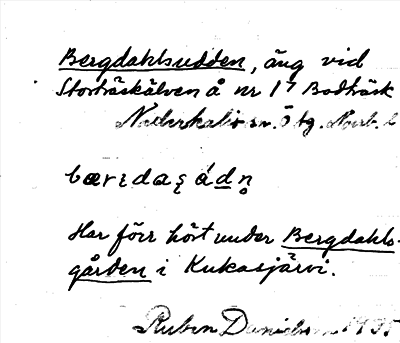 Bergdahlsudden, äng vid
Storträskälven å nr 17 Bodträsk
Nederkalix sn. Ö bg. Norrb. l
bærɩdaꞩ ádn̥
Har förr hört under Bergdahls-
gården i Kukasjärvi.
Ruben Danielsson 1935